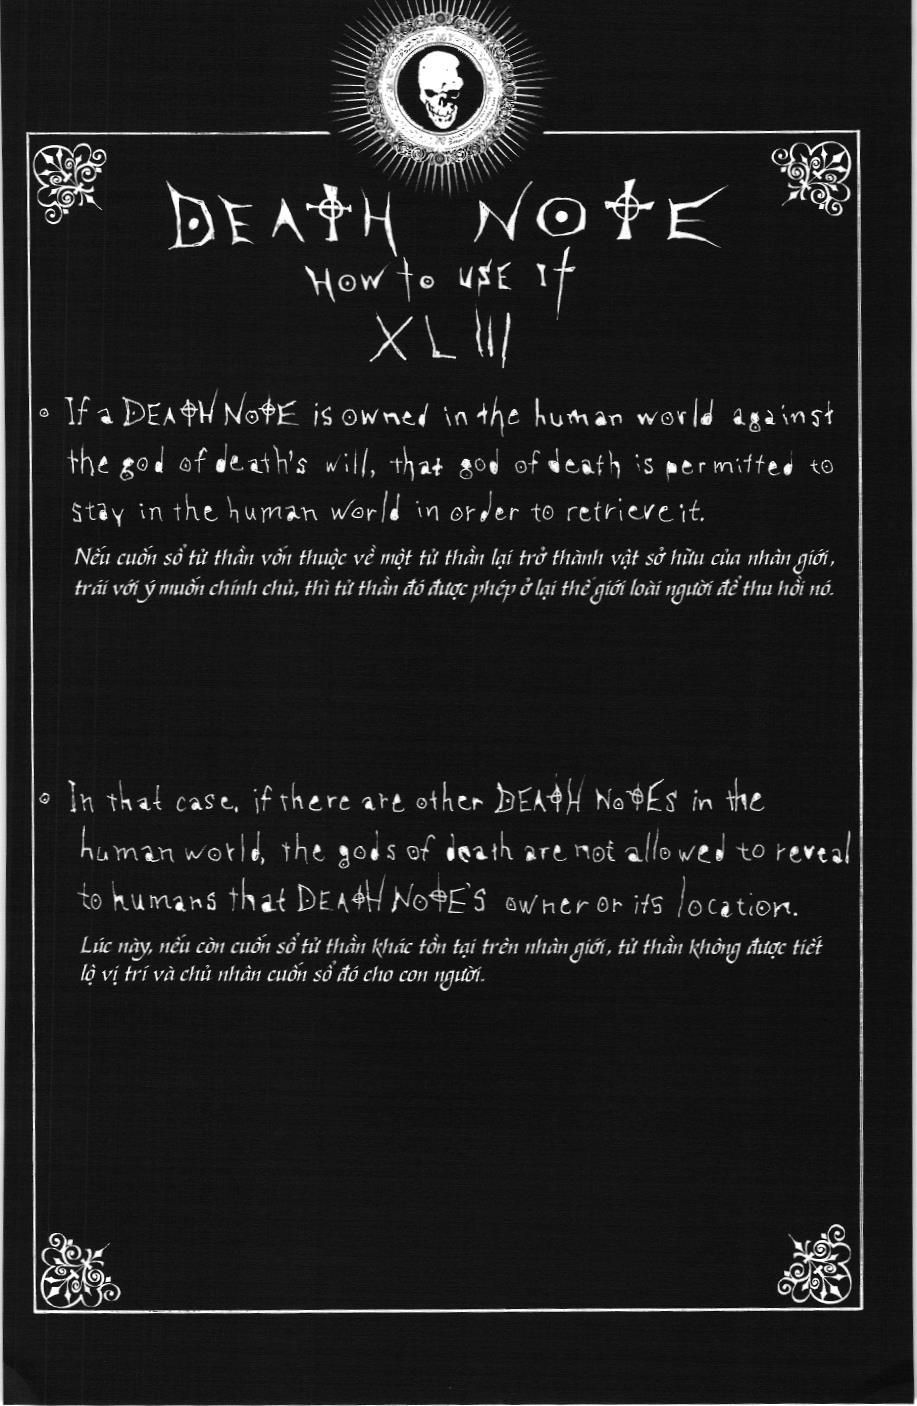 DEATH NOTE
HOW to USE It
XLIII
If a DEATH NOTE is owned in the human world against
the god of death's will, that god of death is permitted to
stay in the human world in order to retrieve it.
Nếu cuốn sổ tử thần vốn thuộc về một tử thần lại trở thành vật sở hữu của nhân giới,
trái với ý muốn chính chủ, thì tử thần đó được phép ở lại thế giới loài người để thu hồi nó.
In that case, if there are other DEATH NOTES in the
human world, the gods of death are not allowed to reveal
to humans that DEATH NOTE'S owner or its location.
Lúc này, nếu còn cuốn sổ tử thần khác tồn tại trên nhân giới, tử thần không được tiết
lộ vị trí và chủ nhân cuốn sổ đó cho con người.